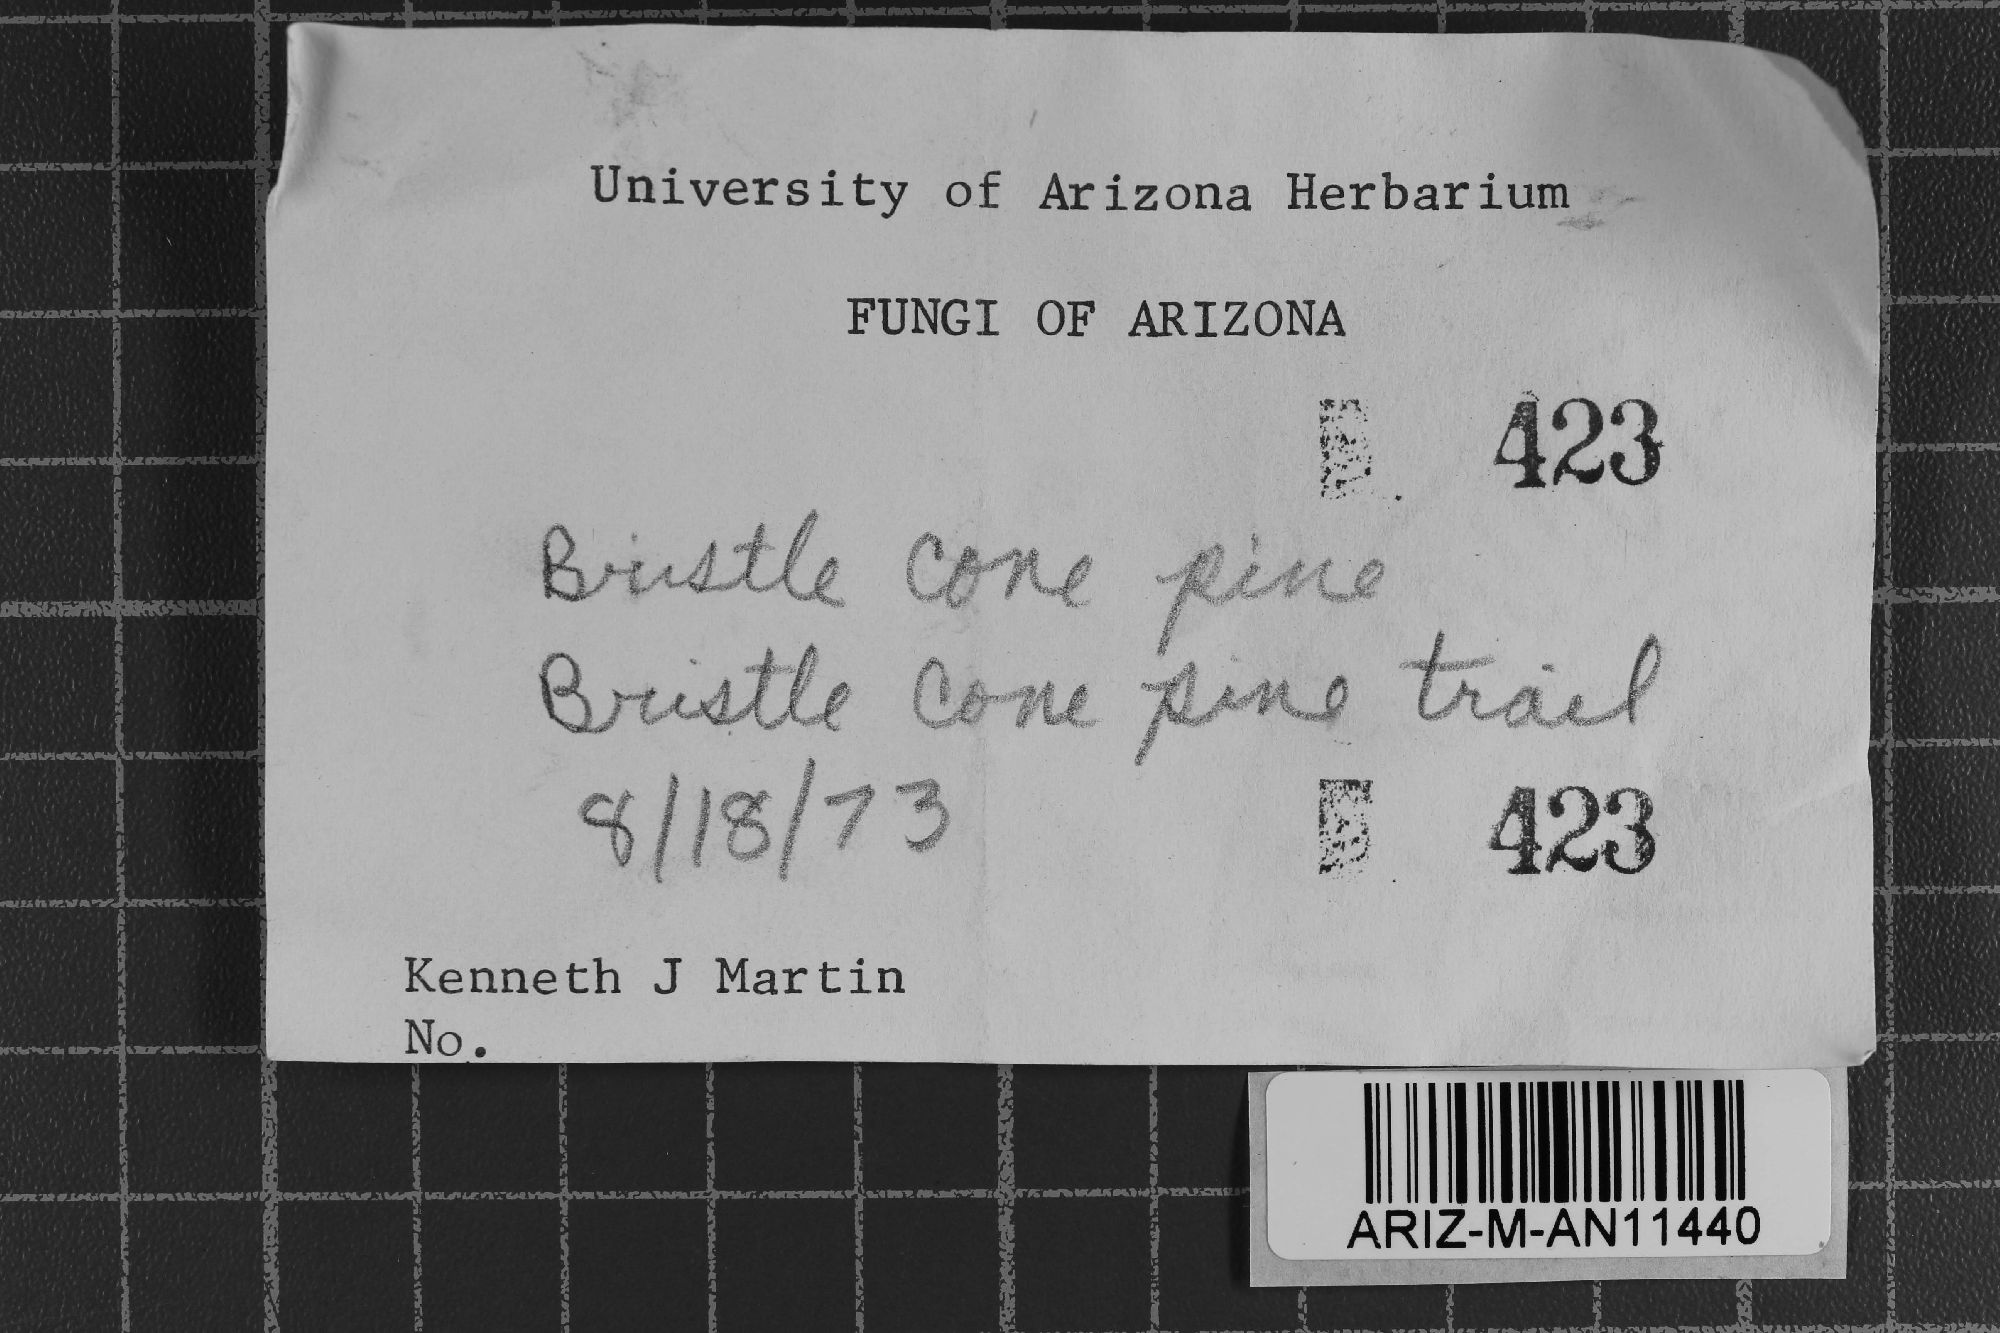 University of Arizona Herbarium
FUNGI OF ARIZONA
423
Bristle cone pine
Bristle cone pine trail
8/18/73
423
Kenneth J Martin
No.
ARIZ-M-AN11440